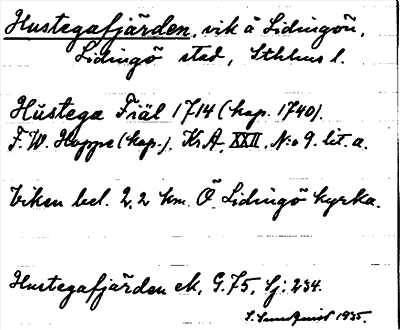 Hustegafjärden, vik å Lidingön,
Lidingö stad, Sthlms l.
Hustega Fiäl 1714 (kop. 1740).
F. W. Hoppe (kop.). Kr.A. XXII. N:o 9. lit. a.
Viken bel. 2,2 km. Ö. Lidingö kyrka.
Hustegafjärden ek. G. 75, Sj: 234.
S. Sundquist 1935.